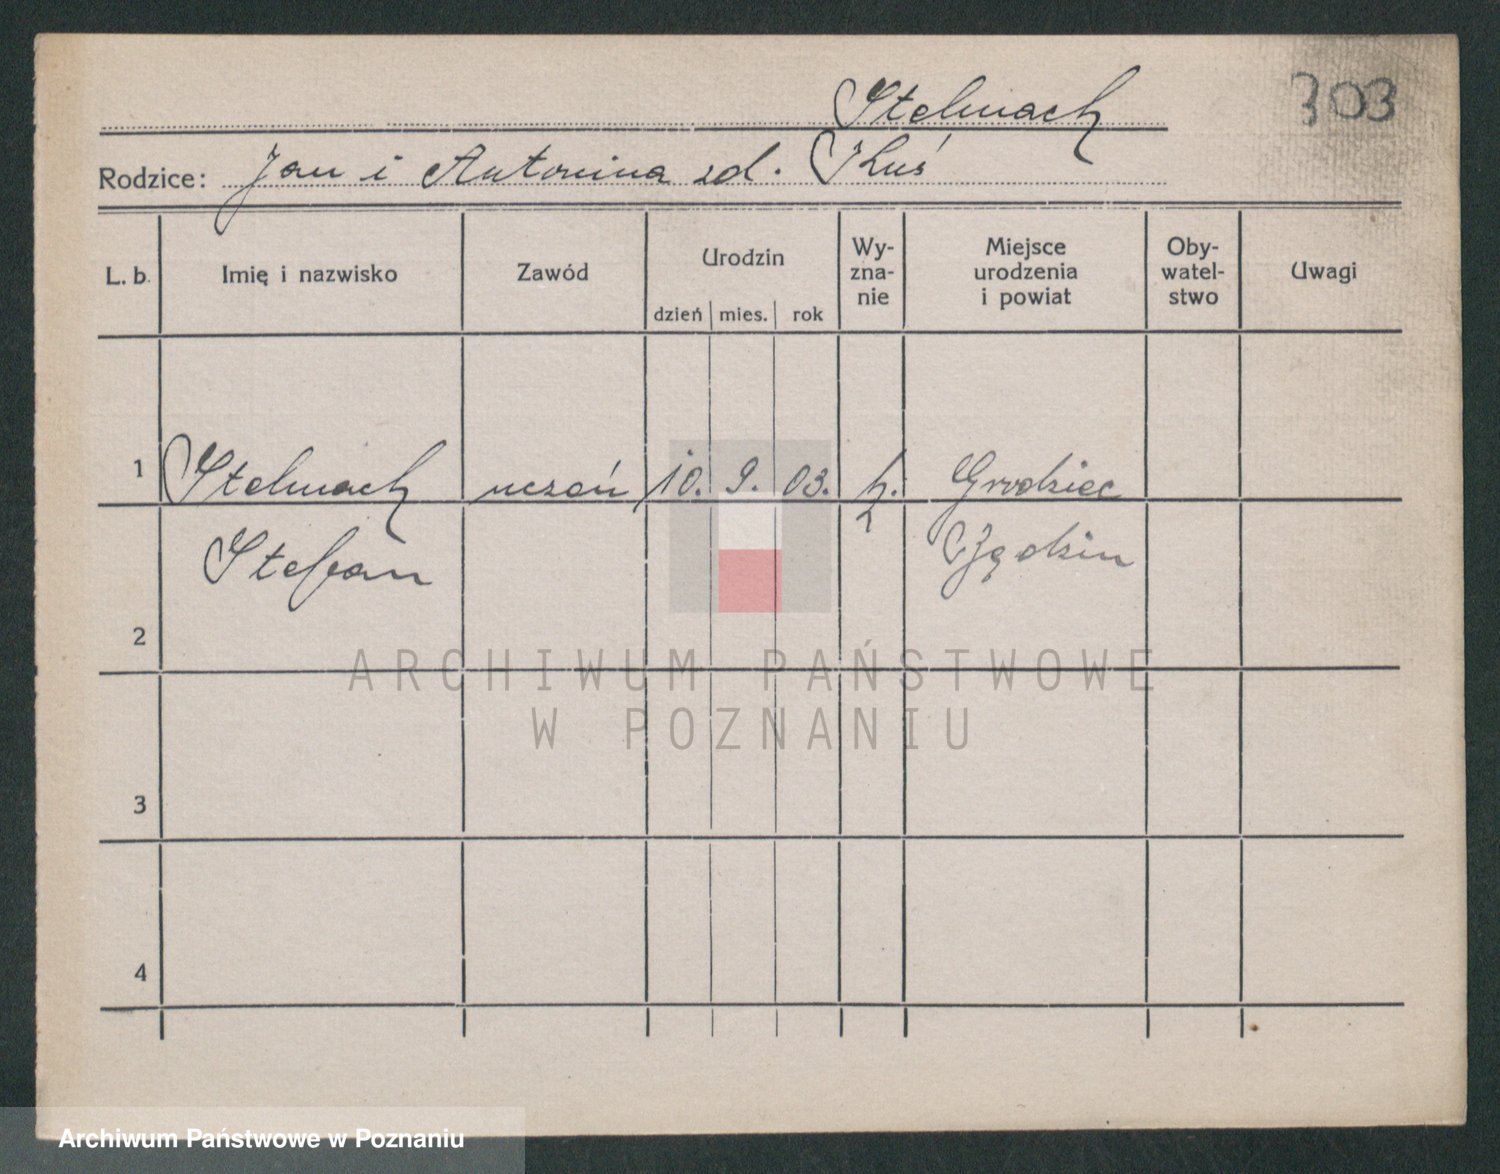 Stelmach
303
Rodzice: Jan i Antonina zd. Kuś
L. b. Imię i nazwisko Zawód Urodzin dzień mies. rok Wy-zna-nie Miejsce urodzenia i powiat Oby-watel-stwo Uwagi
1 Stelmach uczeń 10. 9. 03. k. Grodziec
Stefan Będzin
2
3
4
ARCHIWUM PAŃSTWOWE
W POZNANIU
Archiwum Państwowe w Poznaniu